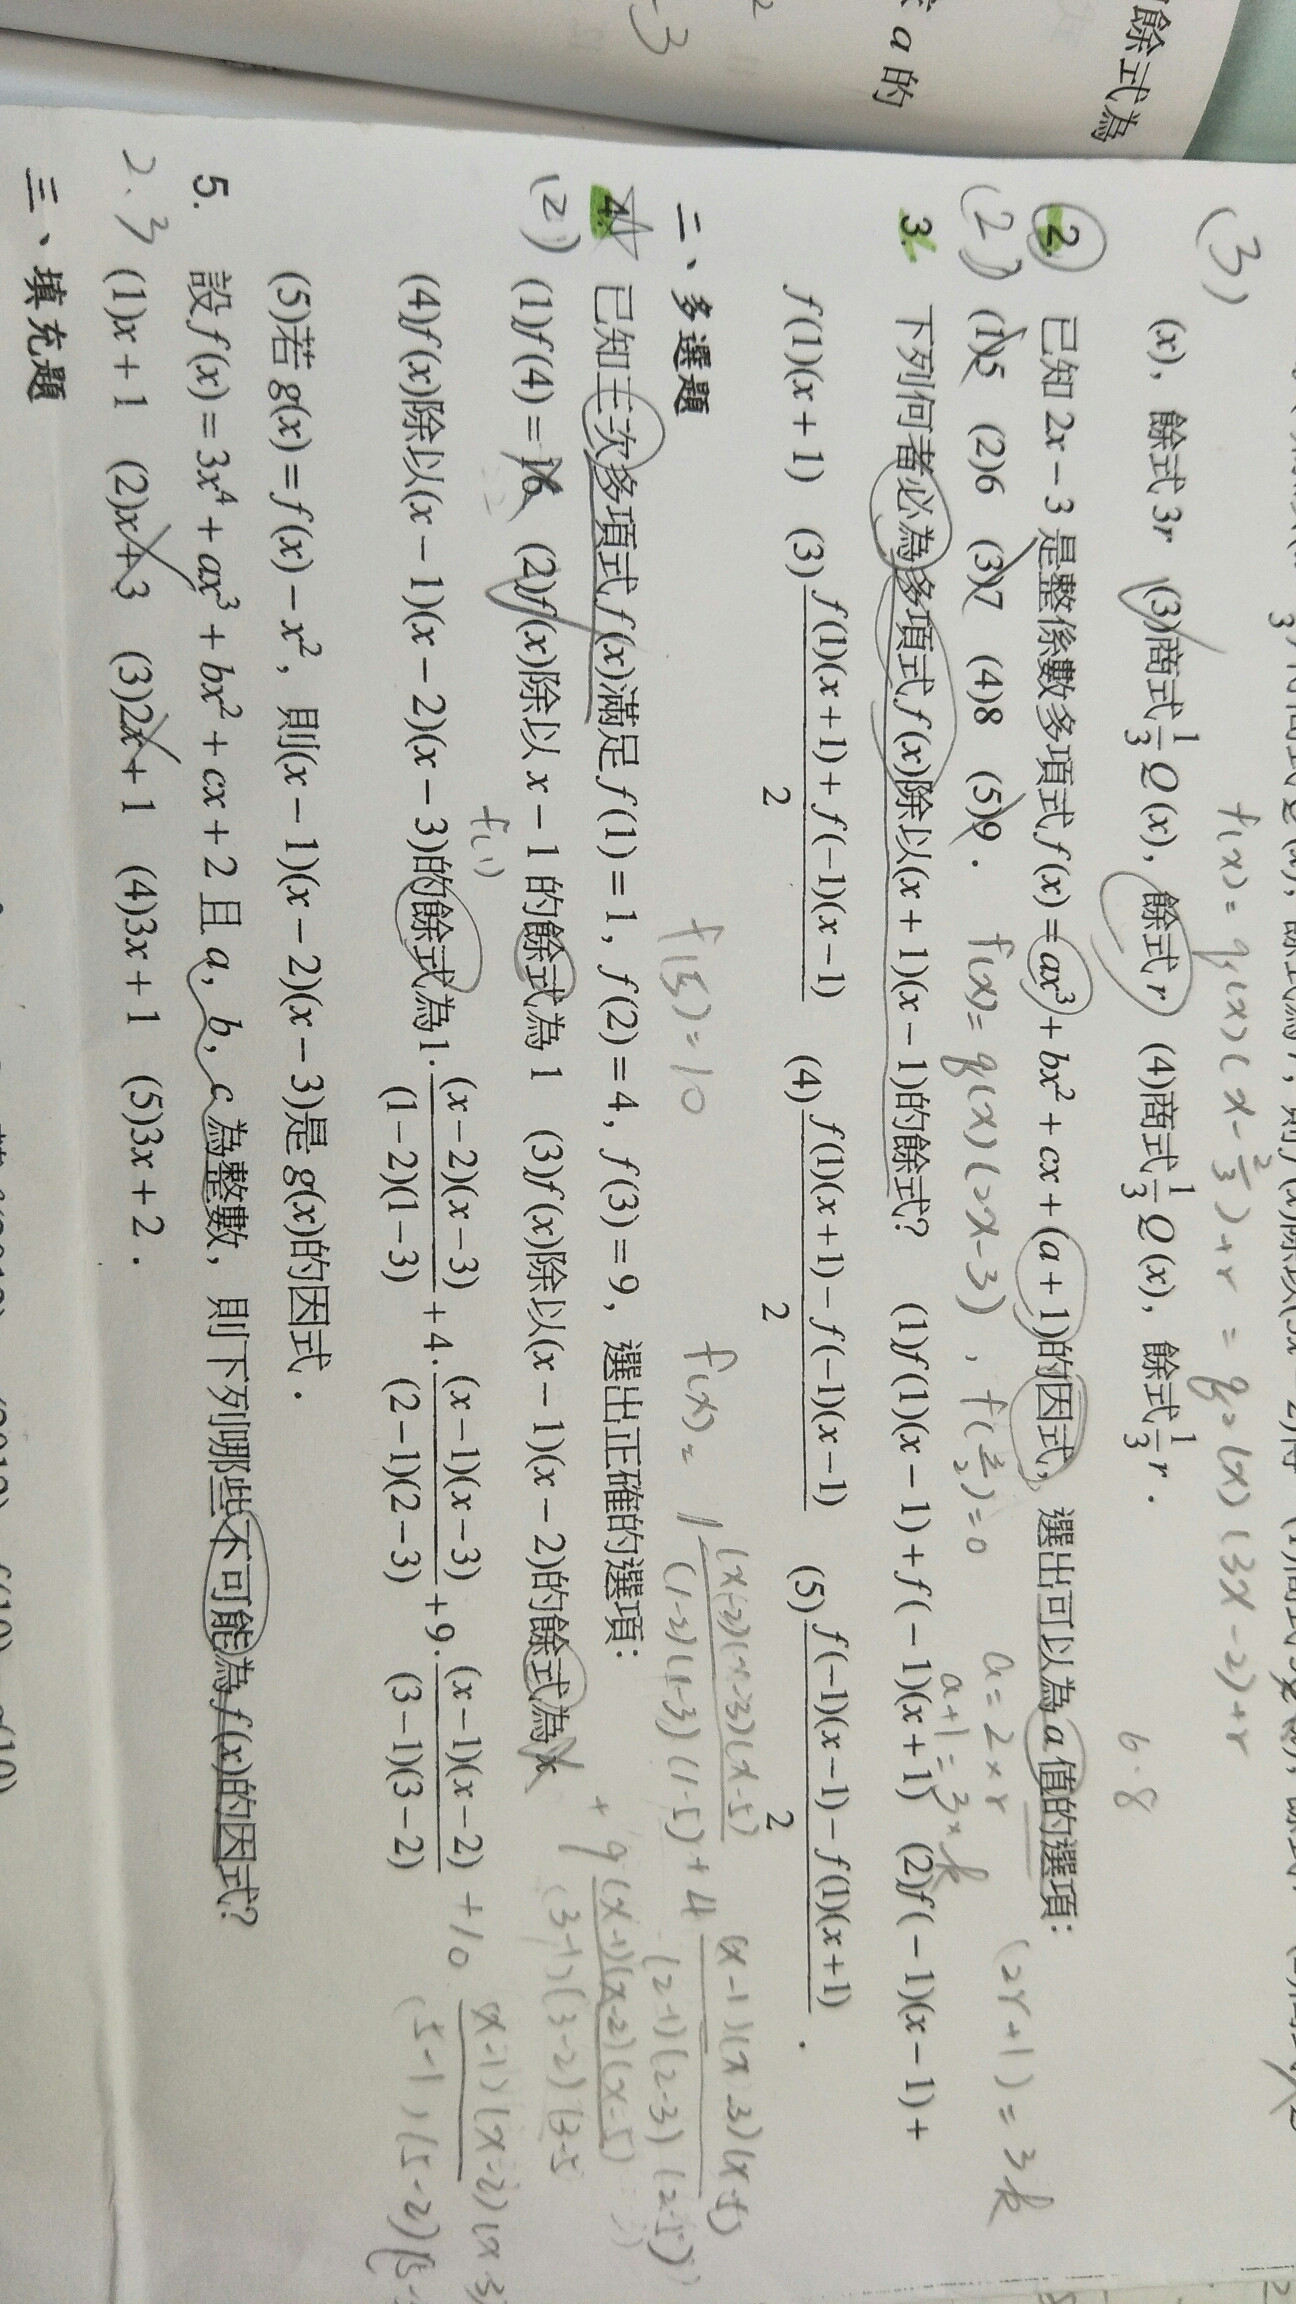 餘式為
a 的
-3
(x)，餘式 3r (3)商式 1/3 Q(x)，餘式 r (4)商式 1/3 Q(x)，餘式 1/3 r．
(3)
f(x) = q₁(x)(x - 2/3) + r = q₂(x)(3x - 2) + r
6.8
2. 已知 2x − 3 是整係數多項式 f(x) = ax³ + bx² + cx + (a + 1)的因式，選出可以為 a 值的選項：
(2)
(1)5 (2)6 (3)7 (4)8 (5)9．
f(x) = q(x)(2x-3)，f(3/2) = 0
a = 2×r
a+1 = 3×k
(2r+1) = 3k
3. 下列何者必為多項式 f(x)除以(x + 1)(x − 1)的餘式？ (1)f(1)(x − 1) + f(−1)(x + 1) (2)f(−1)(x − 1) +
f(1)(x + 1) (3) f(1)(x + 1) + f(−1)(x − 1) / 2 (4) f(1)(x + 1) − f(−1)(x − 1) / 2 (5) f(−1)(x − 1) − f(1)(x + 1) / 2．
二、多選題
f(5) = 10
f(x) = 1 (x-2)(x-3)(x-5) / (1-2)(1-3)(1-5) + 4 (x-1)(x-3)(x-5) / (2-1)(2-3)(2-5)
+ 9 (x-1)(x-2)(x-5) / (3-1)(3-2)(3-5
4. 已知三次多項式 f(x)滿足 f(1) = 1，f(2) = 4，f(3) = 9，選出正確的選項：
(2)
(1)f(4) = 16 (2)f(x)除以 x − 1 的餘式為 1 (3)f(x)除以(x − 1)(x − 2)的餘式為 x
f(1)
(4)f(x)除以(x − 1)(x − 2)(x − 3)的餘式為 1‧(x − 2)(x − 3) / (1 − 2)(1 − 3) + 4‧(x − 1)(x − 3) / (2 − 1)(2 − 3) + 9‧(x − 1)(x − 2) / (3 − 1)(3 − 2)
+10 (x-1)(x-2)(x-3) / (5-1)(5-2)(5-
(5)若 g(x) = f(x) − x²，則(x − 1)(x − 2)(x − 3)是 g(x)的因式．
5. 設 f(x) = 3x⁴ + ax³ + bx² + cx + 2 且 a, b, c 為整數，則下列哪些不可能為 f(x)的因式？
2.3
(1)x + 1 (2)x + 3 (3)2x + 1 (4)3x + 1 (5)3x + 2．
三、填充題